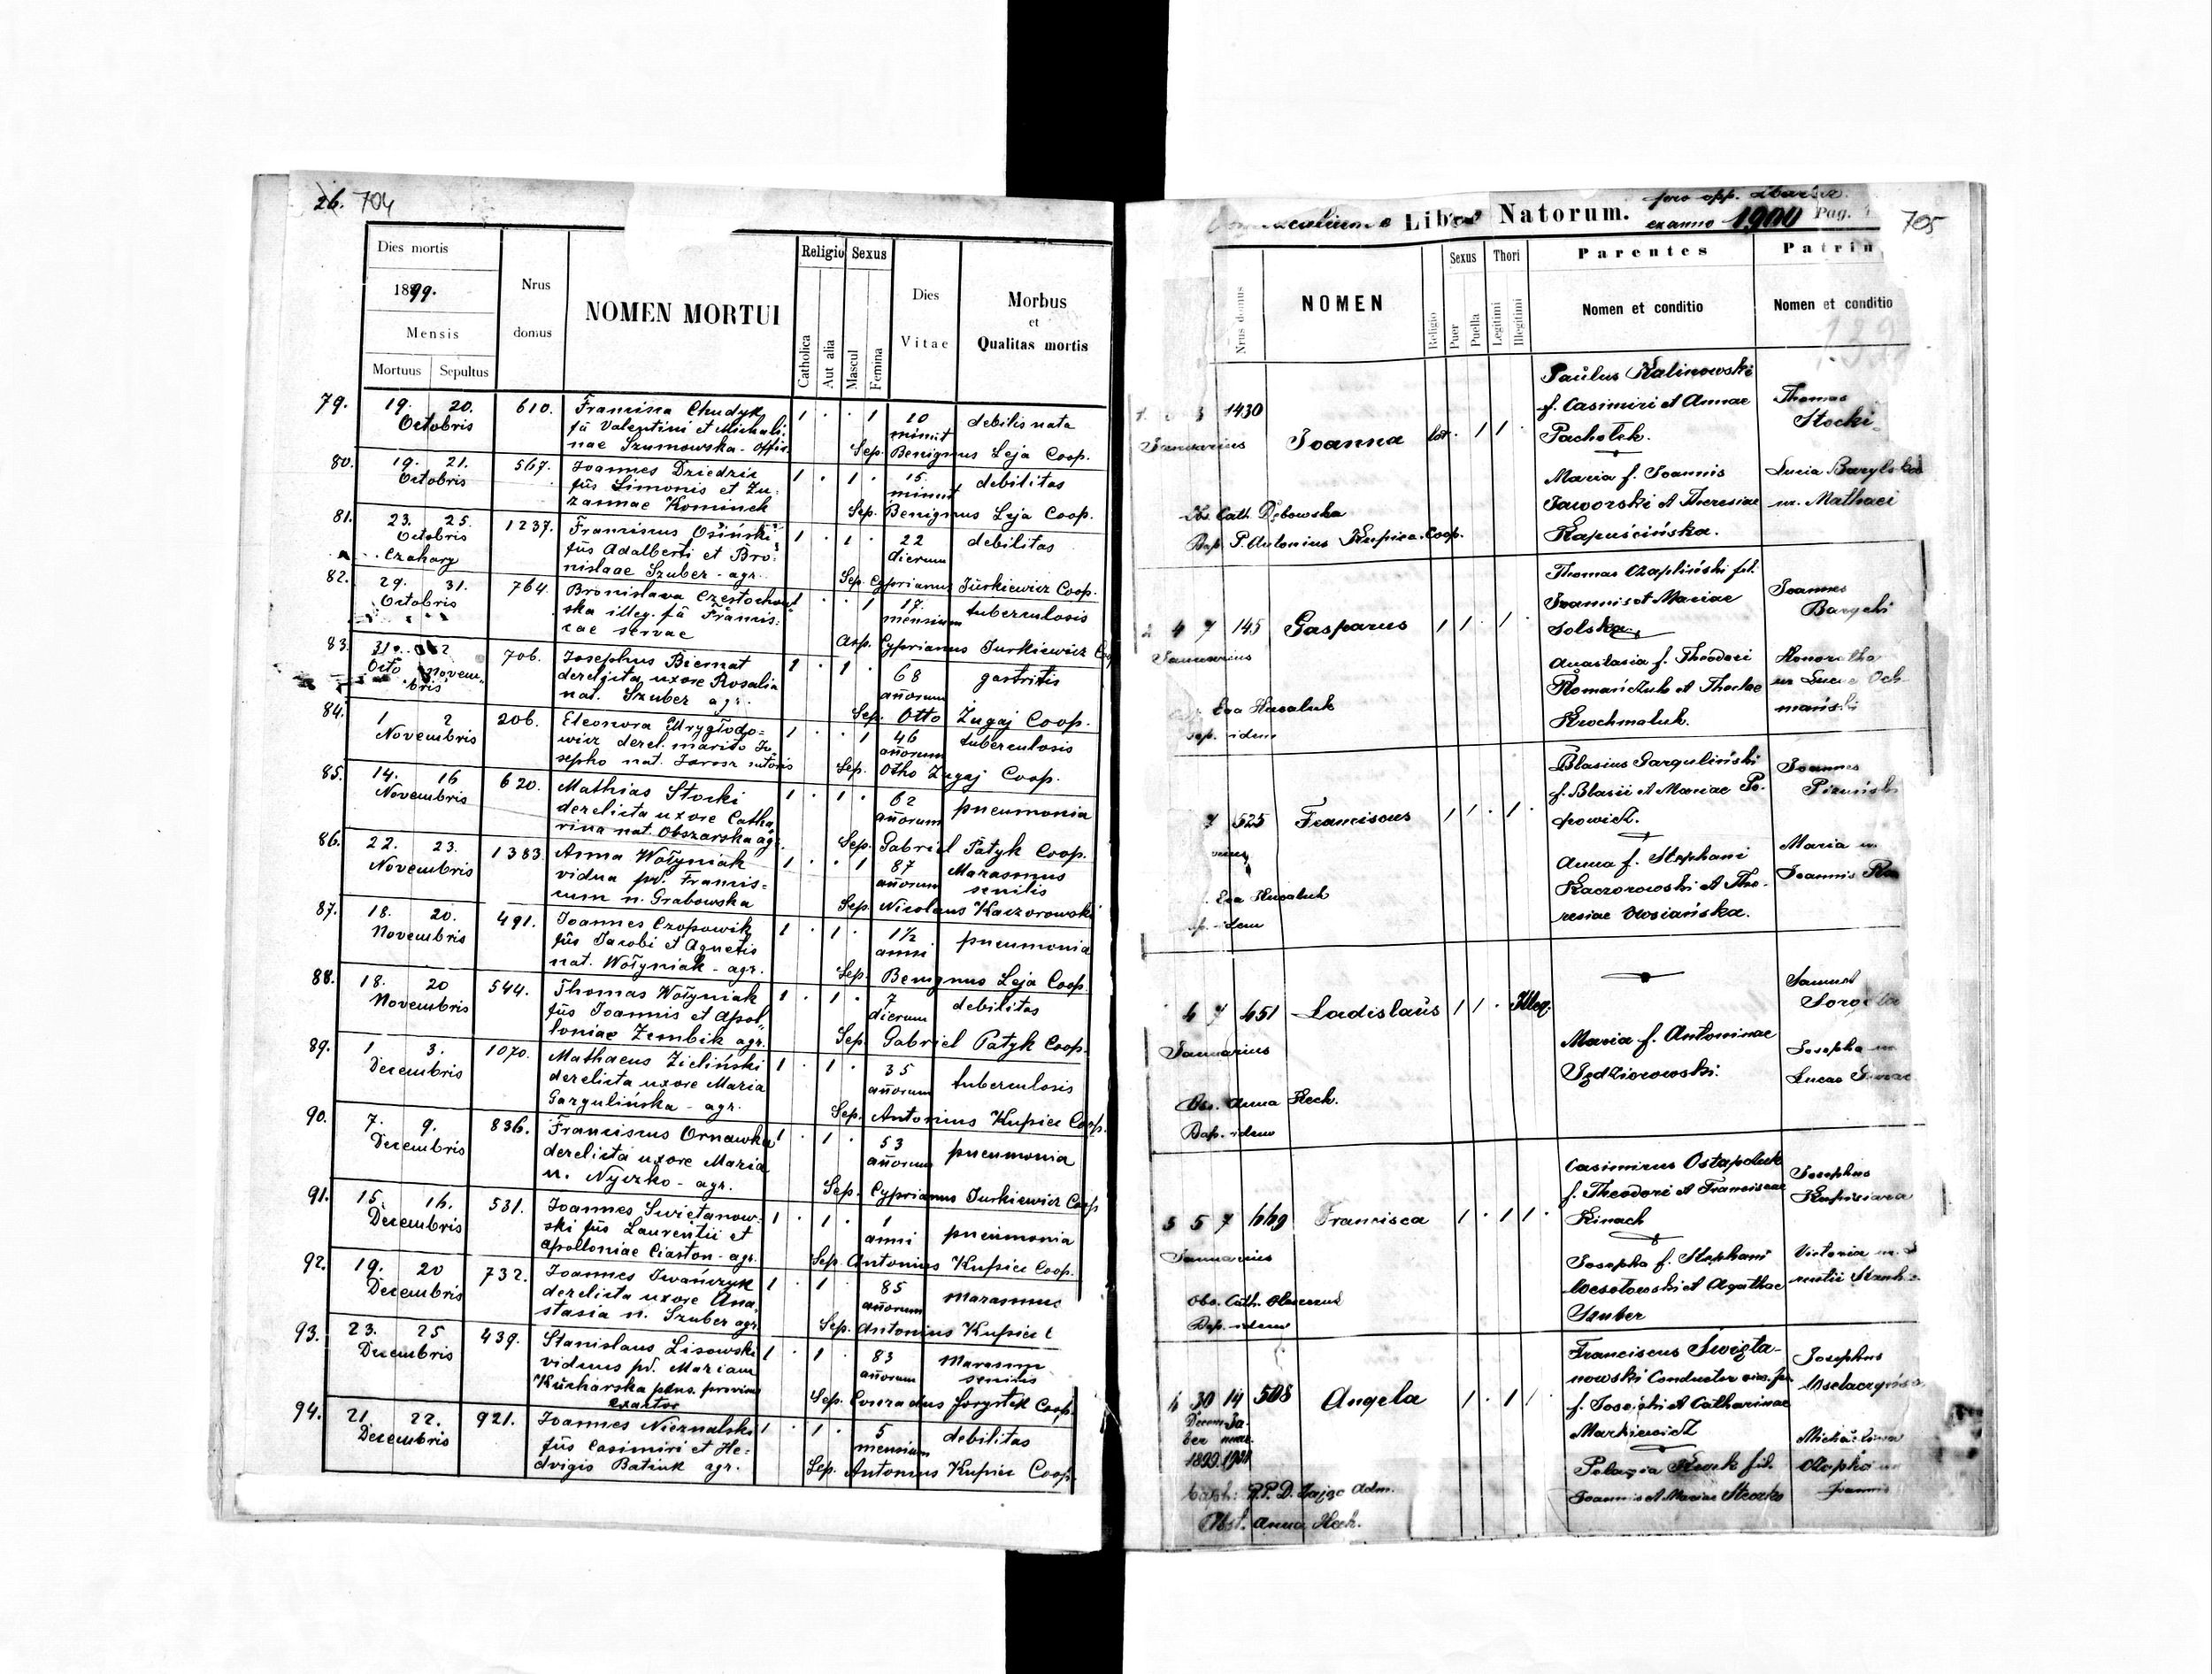 26. 704
Dies mortis
1899.
Mensis
Mortuus Sepultus
Nrus
domus
NOMEN MORTUI
Religio
Catholica
Aut alia
Sexus
Mascul
Femina
Dies
Vitae
Morbus
et
Qualitas mortis
79. 19. 20. 610. Francisca Chudyk 1 . . 1 10 debilis nata
Octobris fa Valentini et Michali: minut
nae Szumowska - Sep. Benignus Leja Coop.
80. 19. 21. 567. Joannes Dziedzic 1 . 1 . 15 debilitas
Octobris fus Simonis et Zu: minut
zannae Kominek Sep. Benignus Leja Coop.
81. 23. 25. 1237. Franciscus Osiński 1 . 1 . 22 debilitas
Octobris fus Adalberti et Bro: dierum
Czahary nislaae Szuber - agr. Sep. Cyprianus Jurkiewicz Coop.
82. 29. 31. 764. Bronislava Częstochow 1 . . 1 17 tuberculosis
Octobris ska illeg. fa Francis: mensium
cae servae Cyprianus Jurkiewicz
83. 31 2 706. Josephus Biernat 1 . 1 . 68 gastritis
Octo Novem derelicta uxore Rosalia añorum
bris nat. Szuber agr. Sep. Otto Zugaj Coop.
84. 1 2 206. Eleonora 1 . . 1 46 tuberculosis
Novembris wicz derel. marito Jo añorum
sepho nat. Jarosz sutoris Sep. Otho Zugaj Coop.
85. 14. 16 620. Mathias Stocki 1 . 1 . 62 pneumonia
Novembris derelicta uxore Catha añorum
rina nat. Obszarska agr. Sep. Gabriel Patyk Coop.
86. 22. 23. 1383. Anna Wołyniak 1 . . 1 87 Marasmus
Novembris vidua pd. Francis= añorum senilis
cum n. Grabowska Sep. Nicolaus Kaczorowski
87. 18. 20. 491. Joannes Czopowik 1 . 1 . 1½ pneumonia
Novembris fus Jacobi et Agnetis anni
nat. Wołyniak - agr. Sep. Benignus Leja Coop.
88. 18. 20 544. Thomas Wołyniak 1 . 1 . 7 debilitas
Novembris fus Joannis et Apol dierum
loniae Zembik agr. Sep. Gabriel Patyk Coop.
89. 1 3. 1070. Mathaeus Zieliński 1 . 1 . 35 tuberculosis
Decembris derelicta uxore Maria añorum
Gargulińska - agr. Sep. Antonius Kupiec Coop.
90. 7. 9. 836. Franciscus Ornawka 1 . 1 . 53 pneumonia
Decembris derelicta uxore Maria añorum
n. Nyczko - agr. Sep. Cyprianus Jurkiewicz Coop
91. 15. 16. 531. Joannes Swietanow 1 . 1 . 1 pneumonia
Decembris ski fus Laurentii et anni
Apolloniae Ciaston - agr. Sep. Antonius Kupiec Coop.
92. 19. 20 732. Joannes Iwańczyk 1 . 1 85 Marasmus
Decembris derelicta uxore Ana añorum
stasia n. Szuber agr. Sep. Antonius Kupiec
93. 23. 25 439. Stanislaus Lisowski 1 . 1 . 83 Marasmus
Decembris viduus pd. Mariam añorum senilis
Kucharska
exactor Sep. Conradus Coop.
94. 21. 22. 921. Joannes Nieznalski 1 . 1 . 5 debilitas
Decembris fus Casimiri et He: mensium
dvigis Batiuk agr. Sep. Antonius Kupiec Coop.
Liber Natorum.
pro opp.
ex anno 1900 Pag. 705
Nrus domus
NOMEN
Religio
Sexus
Puer
Puella
Thori
Legitimi
Illegitimi
Parentes
Nomen et conditio
Patrin
Nomen et conditio
3 1430 Joanna 1 1 .
Januarius
Paulus Kalinowski
f. Casimiri et Annae
Pachołek.
Maria f. Joannis
Jaworski et Theresiae
Kapuścińska.
Thomas
Stocki
Lucia
ux. Mathaei
Obs. Cath. Dębowska
Bap. P. Antonius Kupiec Coop.
4 7 145 Gasparus 1 1 . 1 .
Januarius
Thomas Czapliński fil.
Joannis et Mariae
Solska
Anastasia f. Theodori
Romańczuk et Theclae
Krochmaluk.
Joannes
Honoratha
ux Lucae Och
mański
Eva
Bap. idem
7 525 Franciscus 1 1 . 1 .
Blasius Garguliński
f. Blasii et Mariae Po:
powicz.
Anna f. Stephani
Kaczorowski et The-
resiae
Joannes
Maria ux.
Joannis
Eva
idem
4 7 651 Ladislaus 1 1 . Illeg.
Januarius
Maria f. Antoninae
Sędziorowski.
Samuel
Josepha ux
Lucae
Obs. Anna Heck.
Bap. idem
5 5 7 669 Francisca 1 . 1 1 .
Januarius
Casimirus Ostapchuk
f. Theodori et Franciscae
Kinach
Josepha f. Stephani
Wesołowski et Agathae
Szuber
Josephus
Victoria ux.
Obs. Cath.
Bap. idem
6 30 14 508 Angela 1 . 1 1
Decem Ja
ber nuar.
1899 1900
Franciscus Swięta-
nowski Conductor
f. Josephi et Catharinae
Markiewicz
Pelagia fil.
Joannis et Mariae
Josephus
Michaelina
Joannis
Baph: P.P.D. Zając Adm.
Obst. Anna Heck.